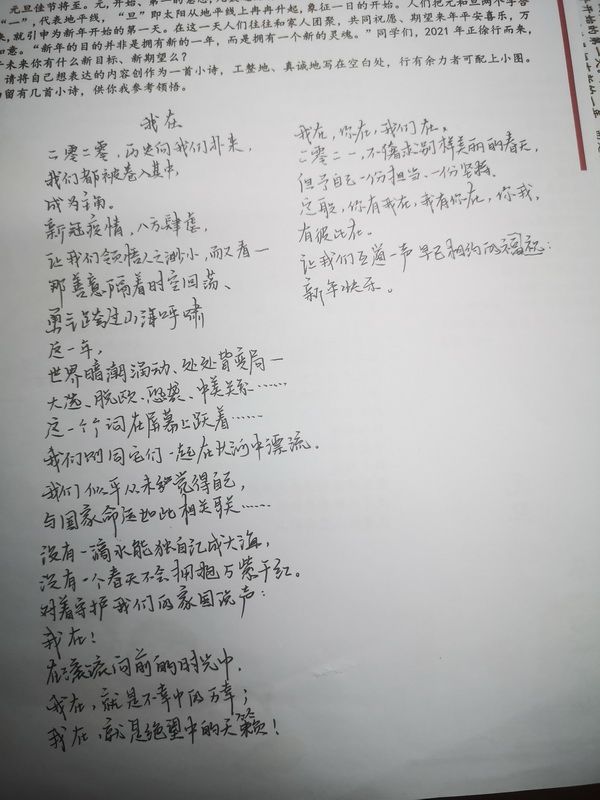 元旦佳节将至。元，开始、第一的意思，
“一”，代表地平线，“旦”即太阳从地平线上冉冉升起，象征一日的开始。人们把元和旦两个字合
就引申为新年开始的第一天。在这一天人们往往和家人团聚，共同祝愿、期望来年平安喜乐，万
如意。“新年的目的并非是拥有新的一年，而是拥有一个新的灵魂。”同学们，2021年正徐行而来，
未来你有什么新目标、新期望么？
请将自己想表达的内容创作为一首小诗，工整地、真诚地写在空白处，行有余力者可配上小图。
留有几首小诗，供你我参考领悟。
我在
二零二零，历史向我们扑来，
我们都被卷入其中，
成为主角。
新冠疫情，八方肆虐，
让我们领悟人之渺小，而又看一
那善意隔着时空回荡、
勇言跨过山海呼啸
这一年，
世界暗潮涌动、处处皆变局一
大选、脱欧、恐袭、中美关系……
这一个个词在屏幕上跃着……
我们则同它们一起在长河中漂流。
我们似乎从未觉得自己，
与国家命运如此相关联……
没有一滴水能独自汇成大海，
没有一个春天不会拥抱万紫千红。
对着守护我们的家国说声：
我在！
在滚滚向前的时光中，
我在，就是不幸中的万幸；
我在，就是绝望中的天籁！
我在，你在，我们在。
二零二一，不偏求别样美丽的春天，
但予自己一份担当、一份坚毅。
这躯，你有我在，我有你在，你我，
有彼此在。
让我们互道一声早已相约的祝福：
新年快乐。